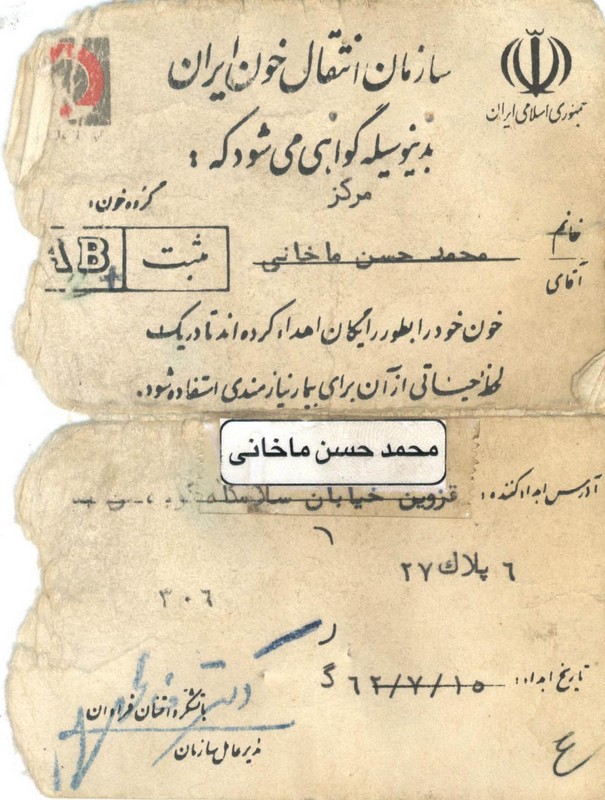 جمهوری اسلامی ایران
سازمان انتقال خون ایران
بدینوسیله گواهی می شود که :
مرکز
گروه خون:
خانم
آقای
محمد حسن ماخانی
مثبت
AB
+
خون خود را بطور رایگان اهداء کرده اند تا در یک
لحظه حیاتی از آن برای بیمار نیازمندی استفاده شود.
محمد حسن ماخانی
آدرس اهداء کننده: قزوین خیابان
٦ پلاك ٢٧
٣٠٦
تاریخ اهداء: ٦٢/٧/١٥ گ
ر
با تشکر و امتنان فراوان
مدیر عامل سازمان
دکتر
ع